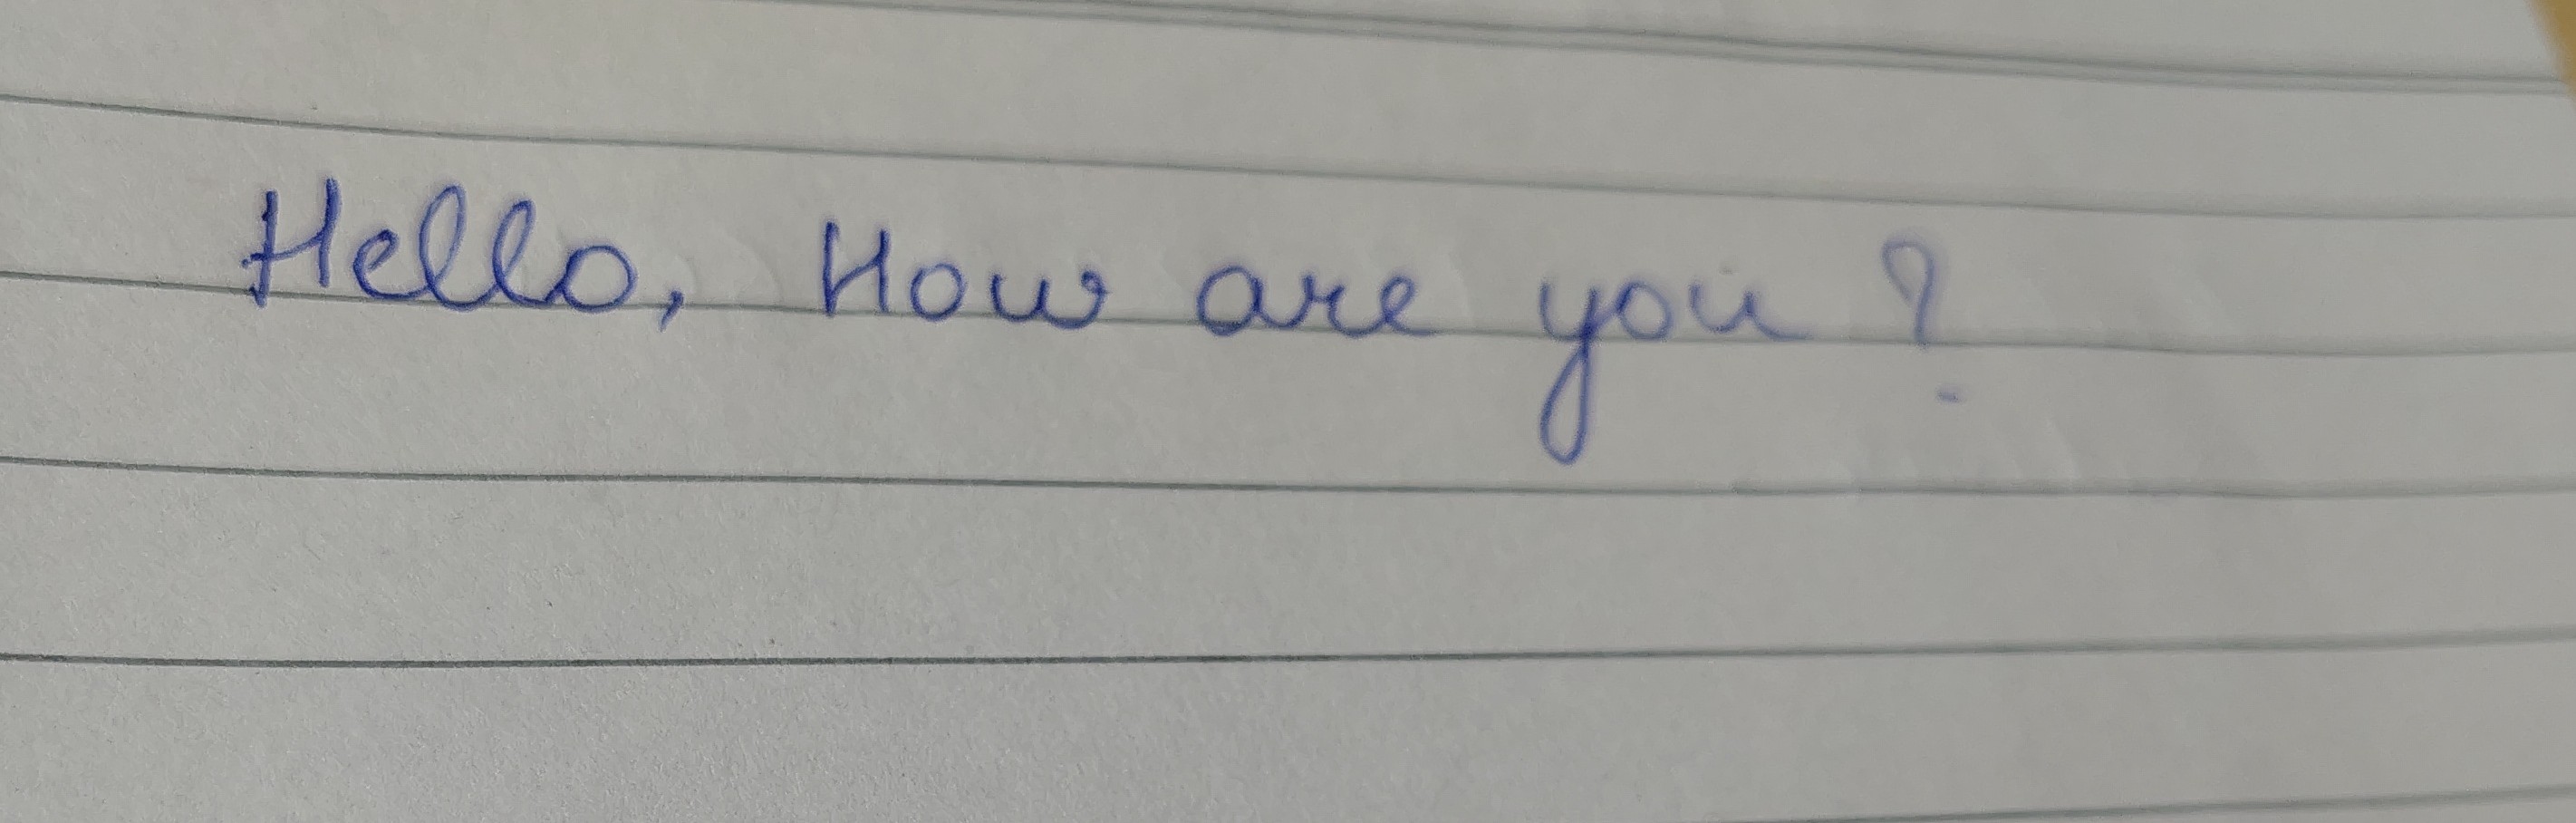 Hello, How are you ?